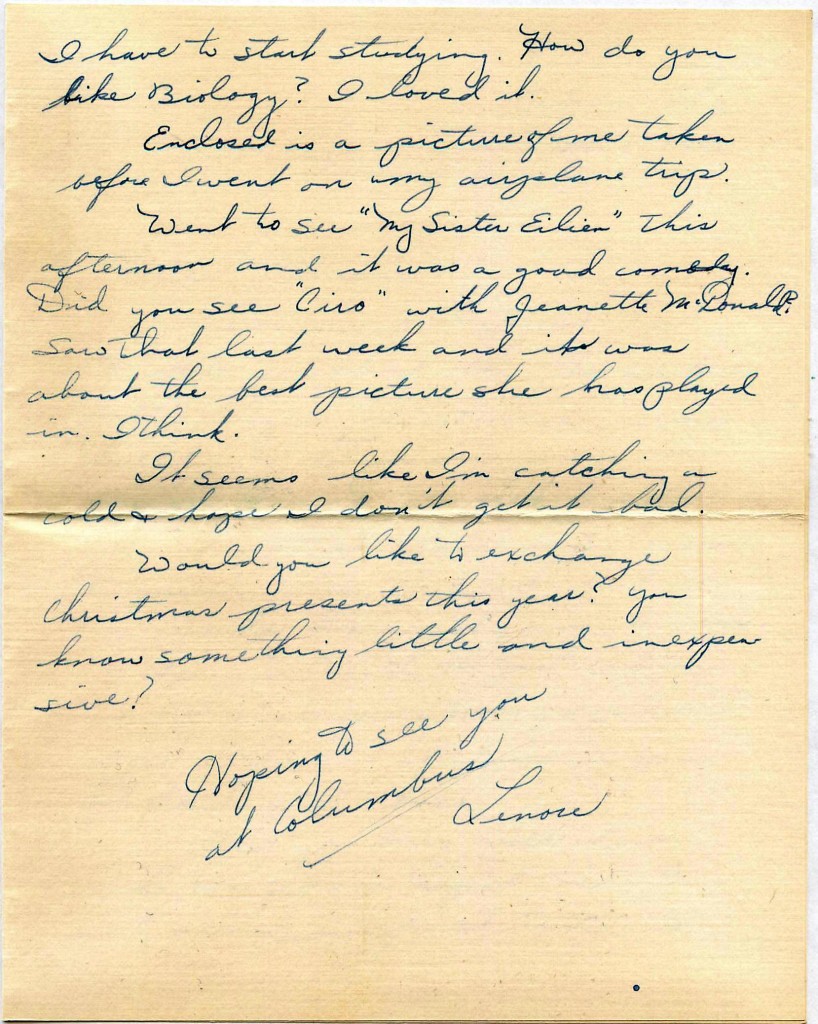 I have to start studying. How do you
like Biology? I loved it.
Enclosed is a picture of me taken
before I went on my airplane trip.
Went to see "My Sister Eilien" this
afternoon and it was a good comedy.
Did you see "Ciro" with Jeanette McDonald?
Saw that last week and it was
about the best picture she has played
in. I think.
It seems like I'm catching a
cold & hope I don't get it bad.
Would you like to exchange
Christmas presents this year? You
know something little and inexpen
sive?
Hoping to see you
at Columbus
Lenore